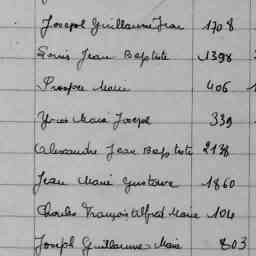 Joseph Guillaume Jean 1708
Louis Jean Baptiste 1398
Prosper Marie 406
Yves Marie Joseph 339
Alexandre Jean Baptiste 2138
Jean Marie Gustave 1860
Charles François Alfred Marie 104
Joseph Guillaume Marie 803